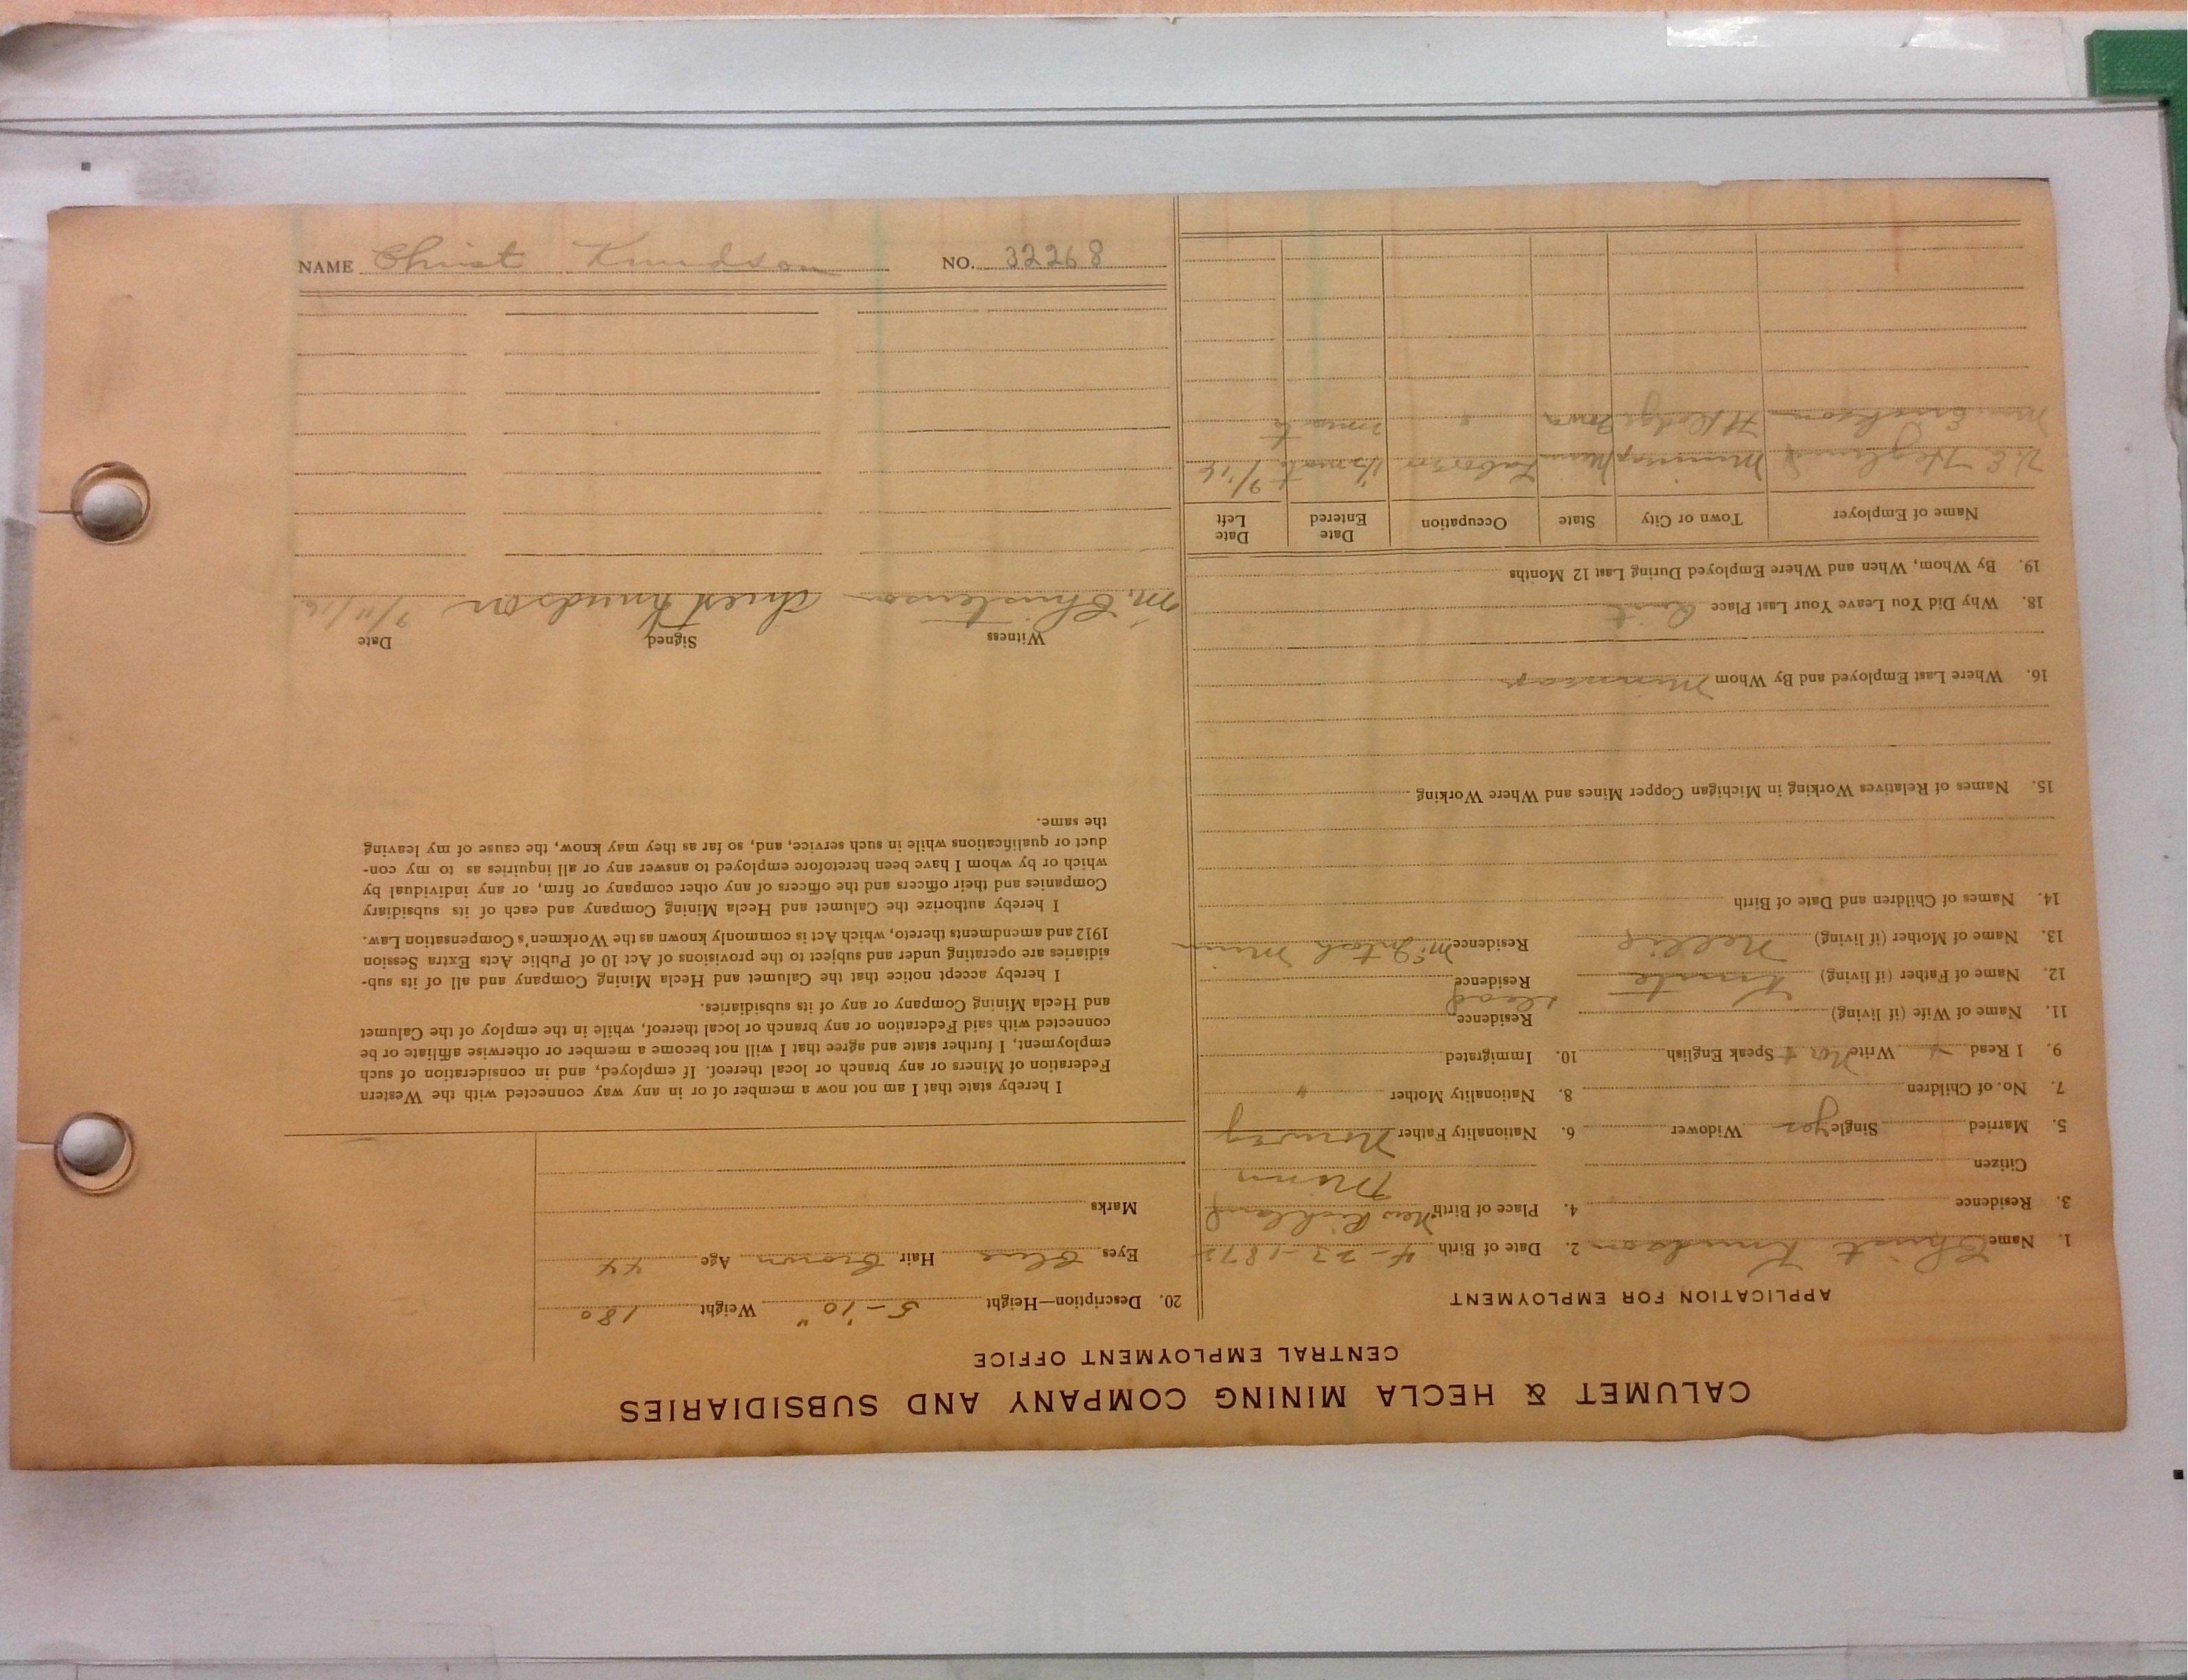 CALUMET & HECLA MINING COMPANY AND SUBSIDIARIES
CENTRAL EMPLOYMENT OFFICE
APPLICATION FOR EMPLOYMENT
1. Name Christ Knudson 2. Date of Birth 4-23-1872
3. Residence 4. Place of Birth New Richland
Citizen Minn
5. Married Single yes Widower 6. Nationality Father Norweg
7. No. of Children 8. Nationality Mother "
9. I Read Write Speak English 10. Immigrated
11. Name of Wife (if living) Residence
12. Name of Father (if living) Knute Residence dead
13. Name of Mother (if living) Nellie Residence McIntosh Minn
14. Names of Children and Date of Birth
15. Names of Relatives Working in Michigan Copper Mines and Where Working
16. Where Last Employed and By Whom
18. Why Did You Leave Your Last Place Quit
19. By Whom, When and Where Employed During Last 12 Months
Name of Employer Town or City State Occupation Date Entered Date Left
Minn Laborer 9/16
Erickson Iowa "
20. Description—Height 5'-10" Weight 180
Eyes Blue Hair Brown Age 44
Marks
I hereby state that I am not now a member of or in any way connected with the Western
Federation of Miners or any branch or local thereof. If employed, and in consideration of such
employment, I further state and agree that I will not become a member or otherwise affiliate or be
connected with said Federation or any branch or local thereof, while in the employ of the Calumet
and Hecla Mining Company or any of its subsidiaries.
I hereby accept notice that the Calumet and Hecla Mining Company and all of its sub-
sidiaries are operating under and subject to the provisions of Act 10 of Public Acts Extra Session
1912 and amendments thereto, which Act is commonly known as the Workmen's Compensation Law.
I hereby authorize the Calumet and Hecla Mining Company and each of its subsidiary
Companies and their officers and the officers of any other company or firm, or any individual by
which or by whom I have been heretofore employed to answer any or all inquiries as to my con-
duct or qualifications while in such service, and, so far as they may know, the cause of my leaving
the same.
Witness Signed Date
M. Christenson Christ Knudson 9/11/16
NAME Christ Knudson NO. 32268